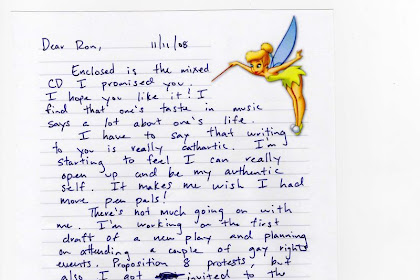 Dear Ron, 11/11/08
Enclosed is the mixed
CD I promised you.
I hope you like it! I
find that one's taste in music
says a lot about one's life.
I have to say that writing
to you is really cathartic. I'm
starting to feel I can really
open up and be my authentic
self. It makes me wish I had
more pen pals!
There's not much going on with
me. I'm working on the first
draft of a new play and planning
on attending a couple of gay rights
events. Proposition 8 protests, but
also I got invited to the